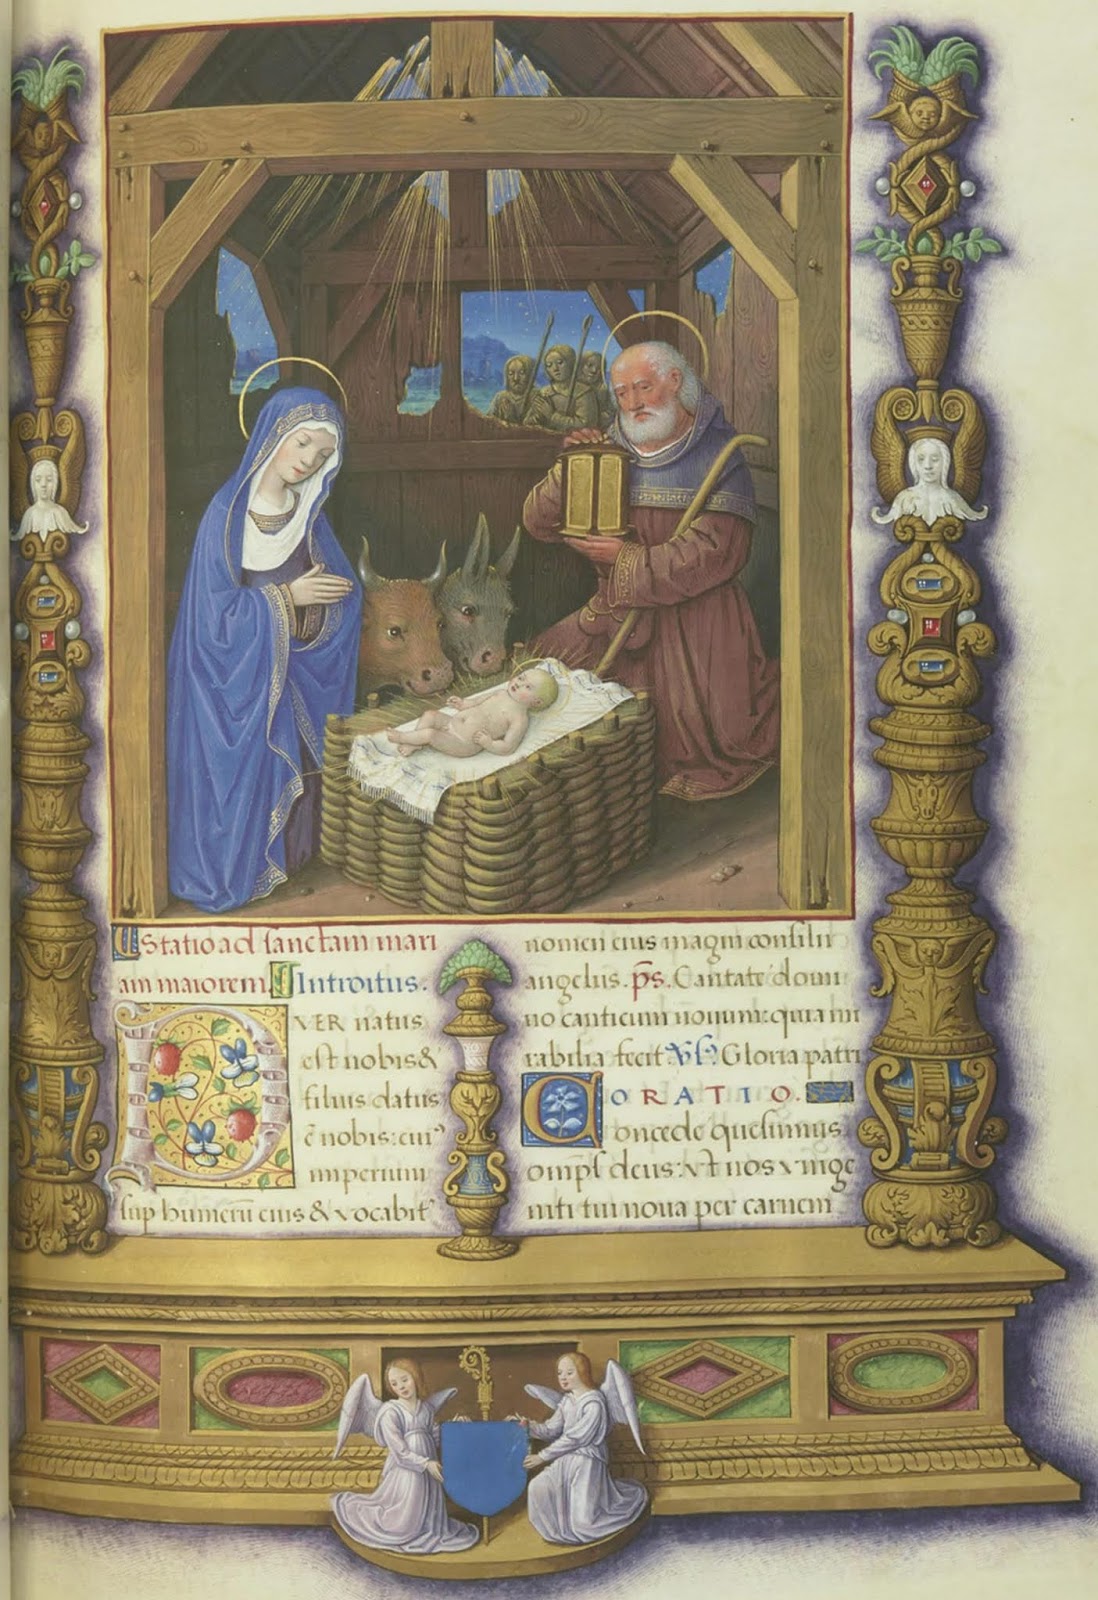 Statio ad sanctam mari
am maiorem. Introitus.
VER natus
est nobis &
filius datus
ē nobis: cuiꝰ
imperium
sup humerū eius & vocabitᷣ
nomen eius magni consilii
angelus. p̄s. Cantate domi
no canticum nouum: quia mi
rabilia fecit. Gloria patri
ORATIO.
Concede quesumus
omp̄s deus: vt nos vnige
niti tui noua per carnem